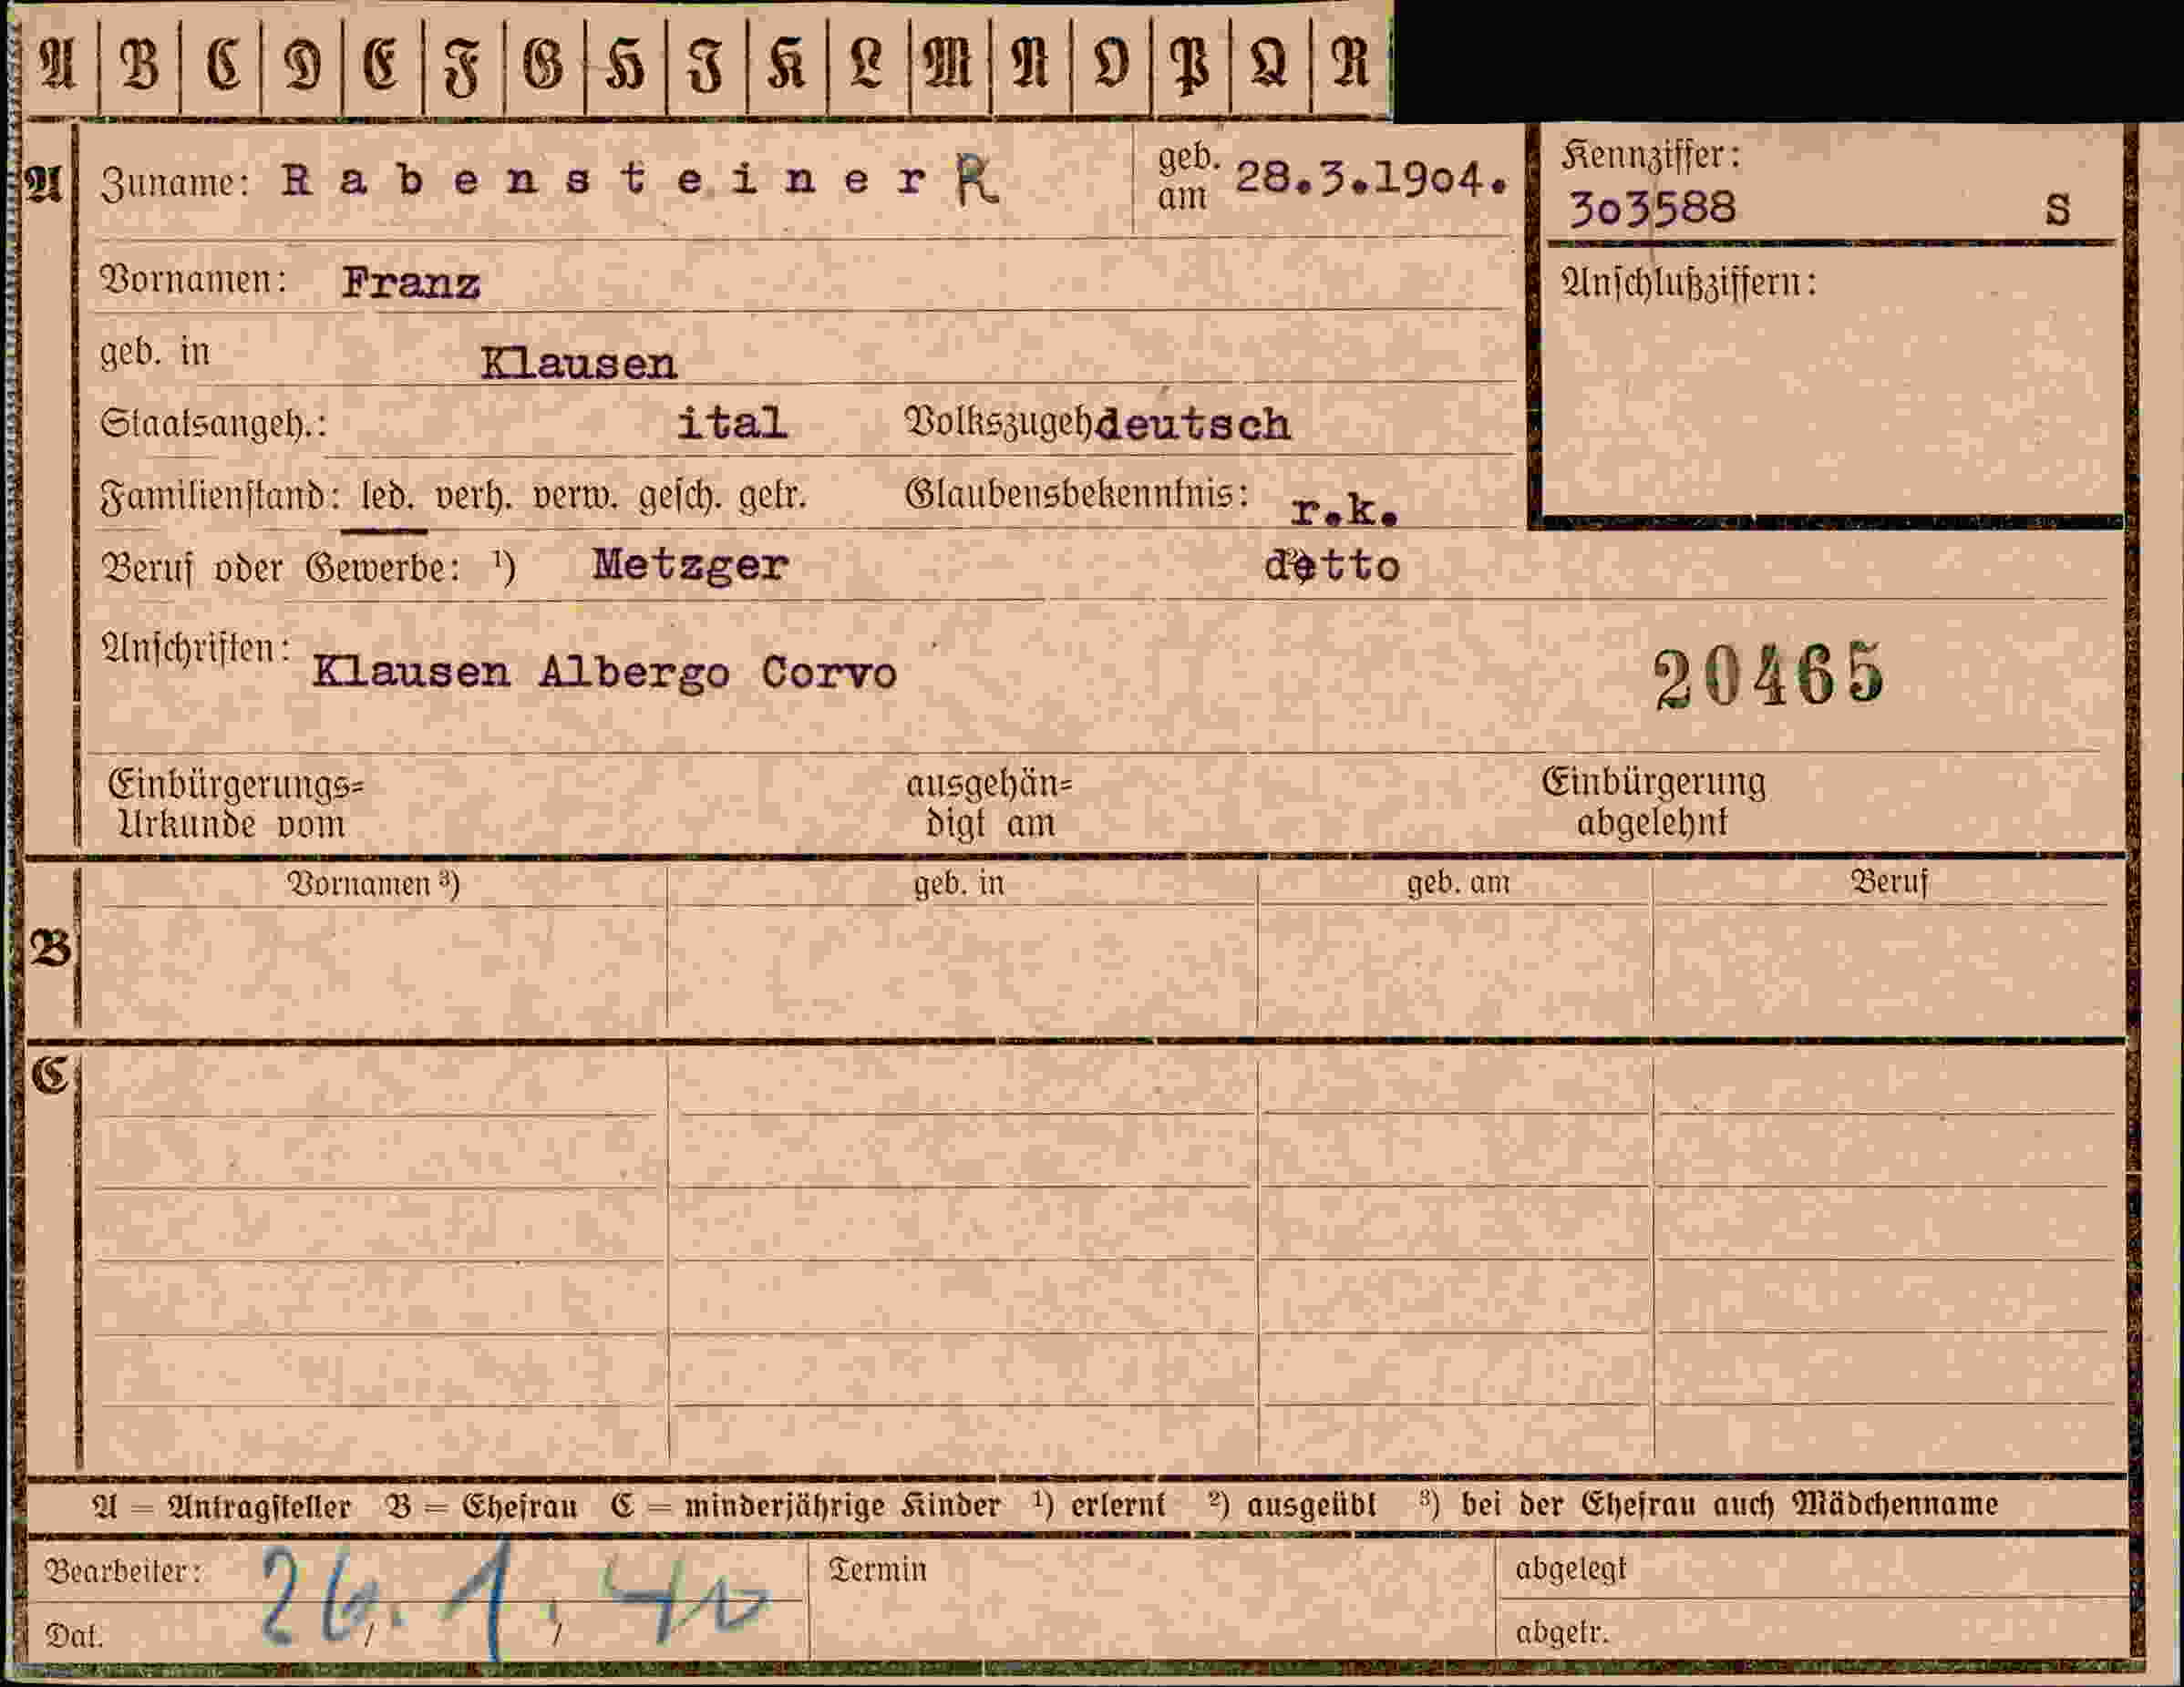 A B C D E F G H I K L M N O P Q R
A Zuname: Rabensteiner R geb. am 28.3.1904. Kennziffer: 303588 S
Vornamen: Franz Anschlußziffern:
geb. in Klausen
Staatsangeh.: ital Volkszugeh deutsch
Familienstand: led. verh. verw. gesch. getr. Glaubensbekenntnis: r.k.
Beruf oder Gewerbe: ¹) Metzger ²) detto
Anschriften: Klausen Albergo Corvo 20465
Einbürgerungs=
Urkunde vom
ausgehän=
digt am
Einbürgerung
abgelehnt
B Vornamen ³) geb. in geb. am Beruf
C
A = Antragsteller B = Ehefrau C = minderjährige Kinder ¹) erlernt ²) ausgeübt ³) bei der Ehefrau auch Mädchenname
Bearbeiter: 26.1.40 Termin abgelegt
Dat. / / abgetr.